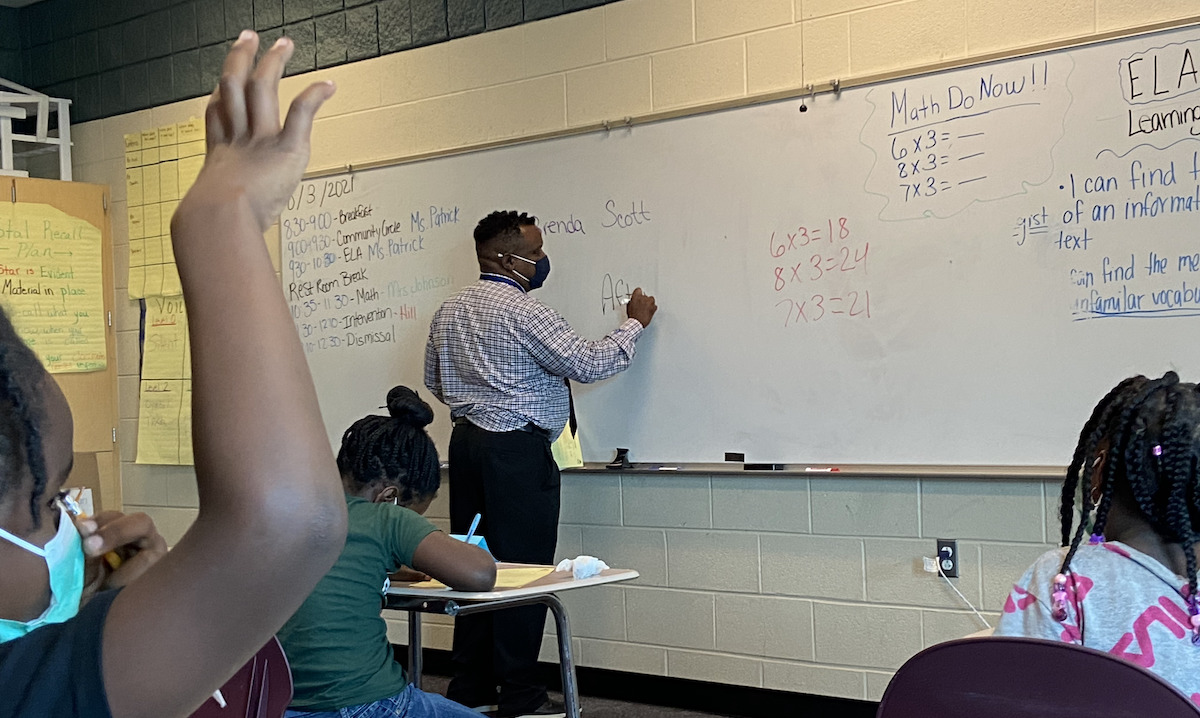 Plan
Star is Evident
Material in place
call what you
Level 2
/3/2021
8:30-9:00 - Breakfast
9:00-9:30 - Community Circle Ms. Patrick
9:30-10:30 - ELA Ms Patrick
Rest Room Break
10:35-11:30 - Math - Mrs. Johnson
30-12:10 - Intervention - Hill
10-12:30 - Dismissal
renda Scott
Aft
6x3=18
8x3=24
7x3=21
Math Do Now!!
6x3=
8x3=
7x3=
ELA
Learning
• I can find t
gist of an informat
text
can find the me
unfamilar vocabu